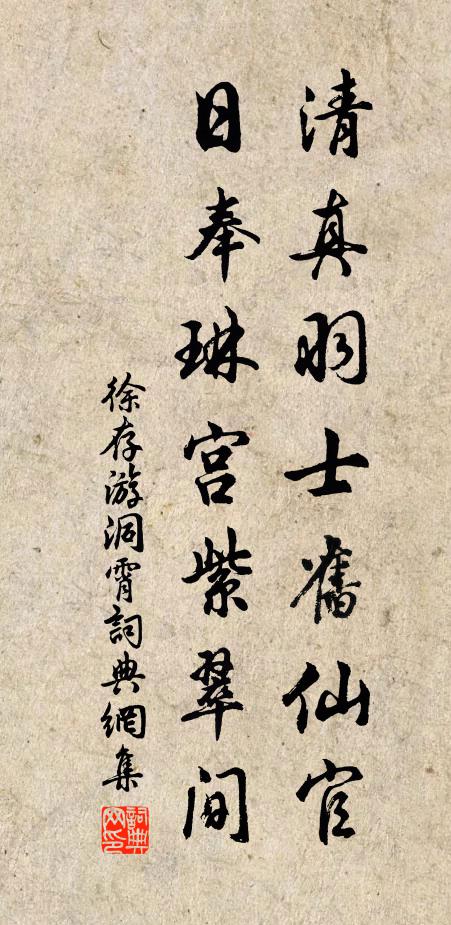 清真羽士舊仙官
日奉琳宫紫翠间
徐存游洞霄詞典網集
詞典網印